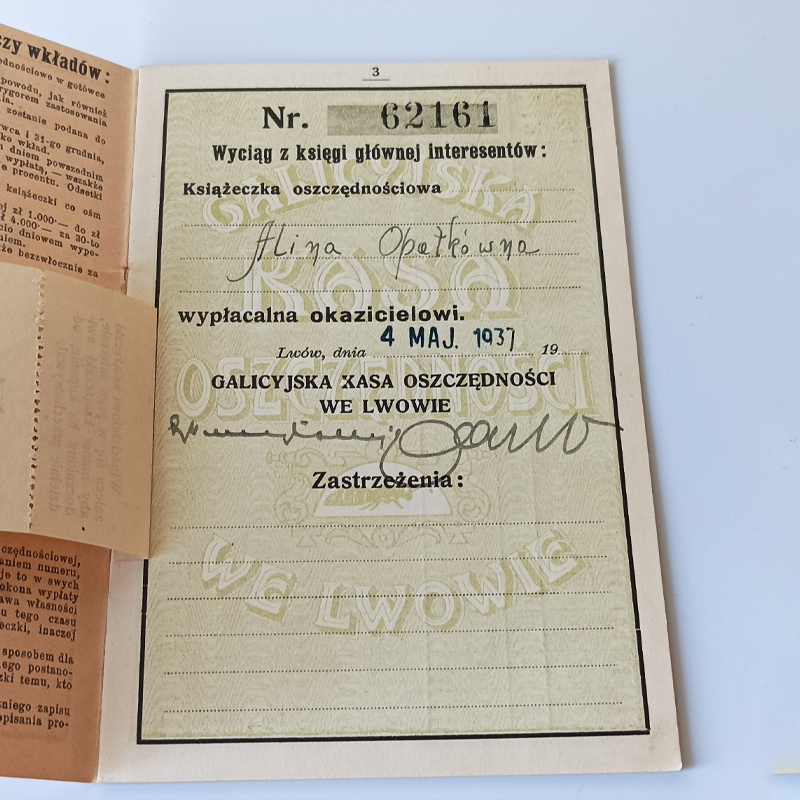 czy wkładów:
ędnościowe w gotówce
powodu, jak również
rygorem zastosowania
ia.
zostanie podana do
wca i 31-go grudnia,
ko wkład.
dniem powszednim
wypłatą, — wszakże
e procentu. Odsetki
książeczki co ośm
ej zł 1.000·— do zł
ł 4.000·— za 30-to
cio dniowem wypo-
niem.
że bezzwłocznie za
czędnościowej,
aniem numeru,
je to w swych
okona wypłaty
awa własności
u tego czasu
eczki, inaczej
sposobem dla
nego postano-
zki temu, kto
niego zapisu
opisania pro-
3
Nr. 62161
Wyciąg z księgi głównej interesentów:
Książeczka oszczędnościowa
Alina Opałkówna
wypłacalna okazicielowi.
4 MAJ. 1937
Lwów, dnia 19
GALICYJSKA KASA OSZCZĘDNOŚCI
WE LWOWIE
Zastrzeżenia:
GALICYJSKA
KASA
OSZCZĘDNOŚCI
WE LWOWIE